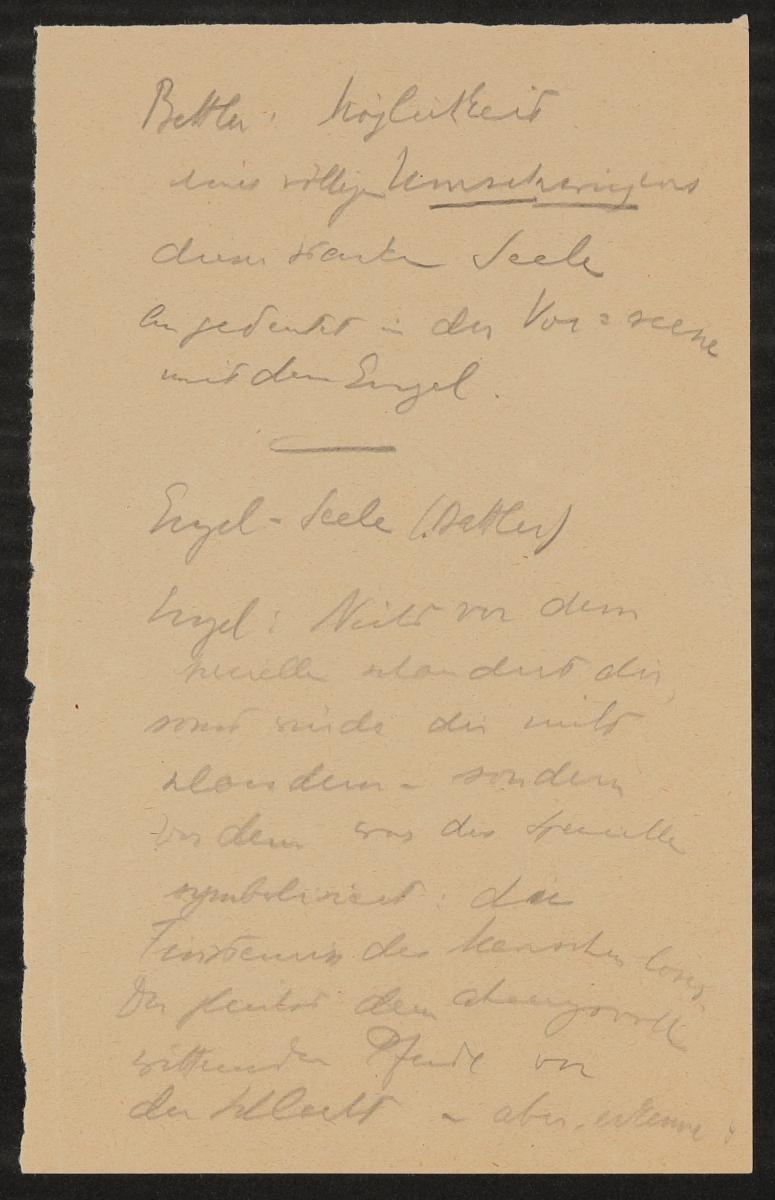 Bettler: Möglichkeit
eines völligen Umschwinges
dieser starken Seele
angedeutet in der Vor=scene
mit dem Engel.
Engel – Seele (Bettler)
Engel: Nicht vor dem
speciellen schaudert dir,
sonst würde dir nicht
schaudern – sondern
vor dem was das specielle
symbolisiert: die
Finsternis des Menschenloses.
Du gleichst dem ahnungsvoll
witternden Pferde vor
der Schlacht – aber, erkenne: